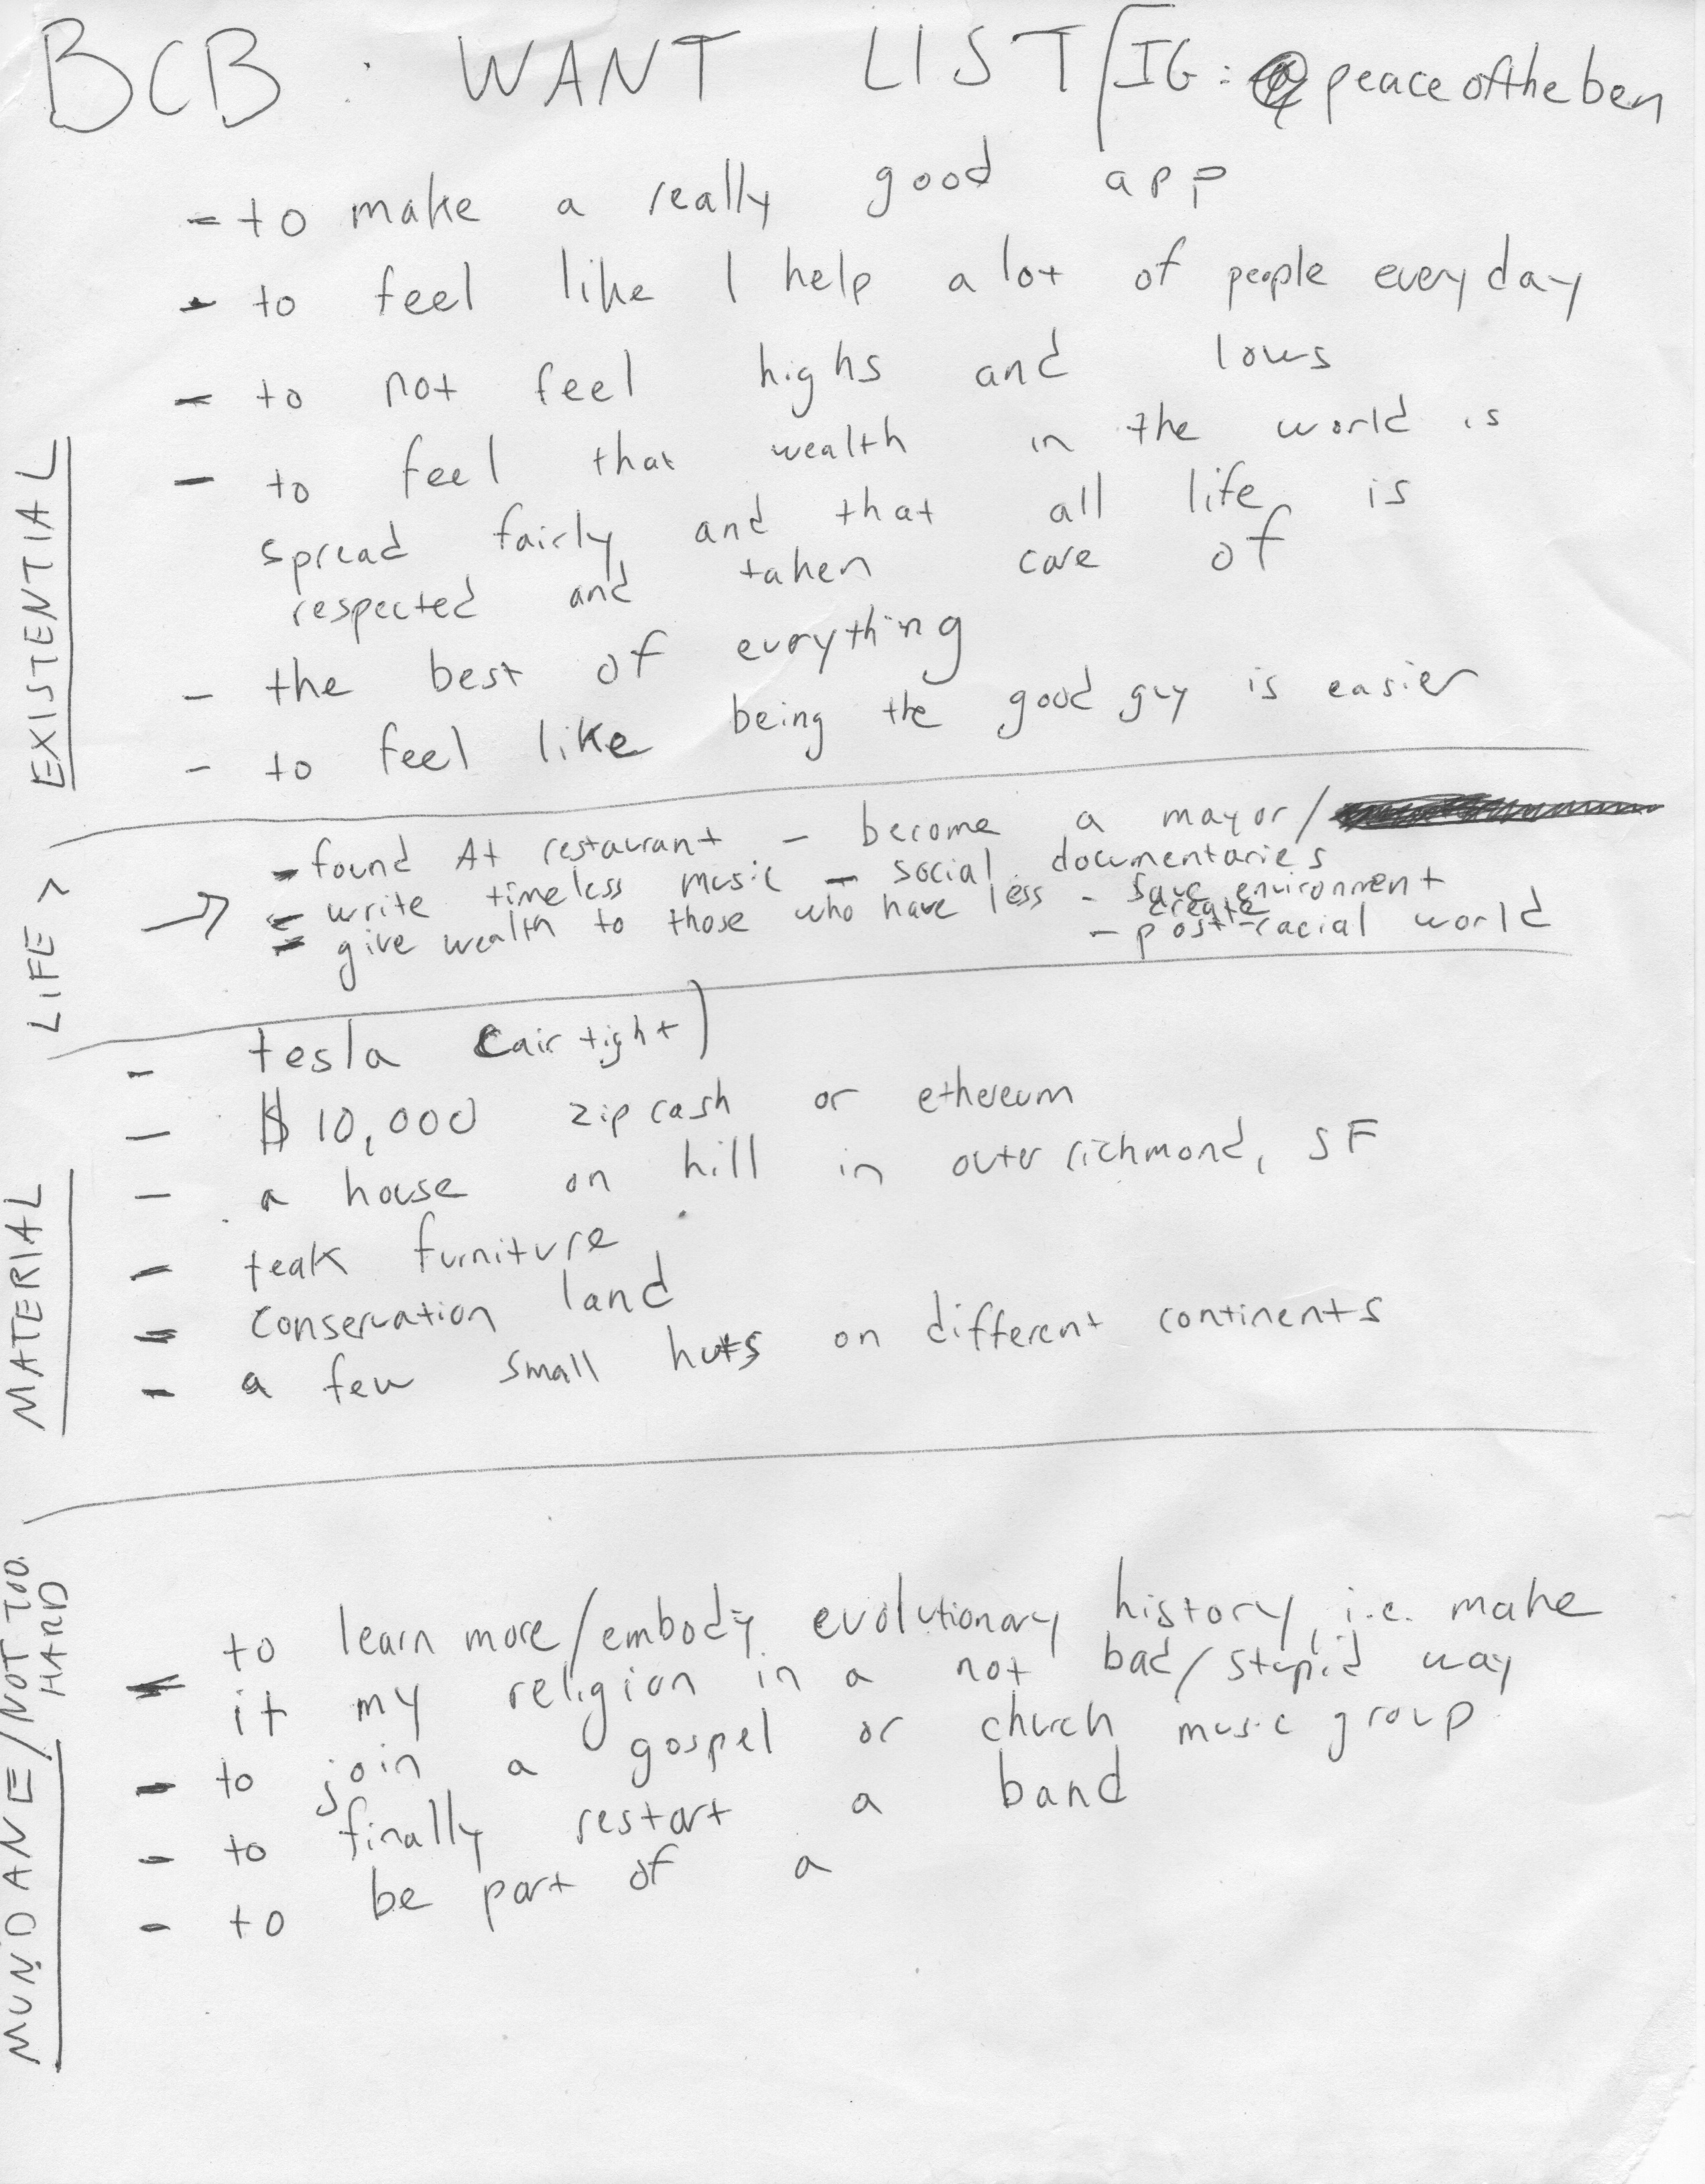 BCB: WANT LIST/IG: @peaceoftheben
- to make a really good app
- to feel like I help a lot of people everyday
- to not feel highs and lows
- to feel that wealth in the world is
spread fairly and that all life is
respected and taken care of
- the best of everything
- to feel like being the good guy is easier
EXISTENTIAL
- found At restaurant - become a mayor/
- write timeless music - social documentaries
- give wealth to those who have less - save environment
- create post-racial world
LIFE >
- tesla (airtight)
- $10,000 zip cash or ethereum
- a house on hill in outer richmond, SF
- teak furniture
- conservation land
- a few small huts on different continents
MATERIAL
- to learn more/embody evolutionary history, i.e. make
it my religion in a not bad/stupid way
- to join a gospel or church music group
- to finally restart a band
- to be part of a
MUNDANE/NOT TOO
HARD